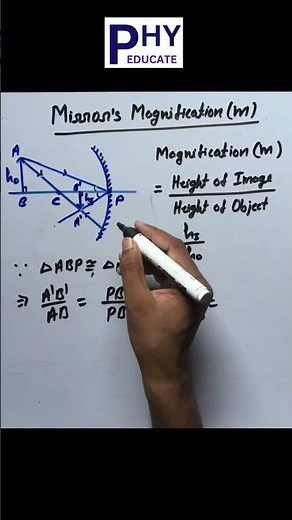 PHY
EDUCATE
Mirror's Magnification (m)
Magnification (m)
= Height of Image
Height of Object
hI
ho
A
ho
B
C
B'
hI
A'
P
∵ △ABP ≅ △
⇒ A'B' = PB
AB PB
=